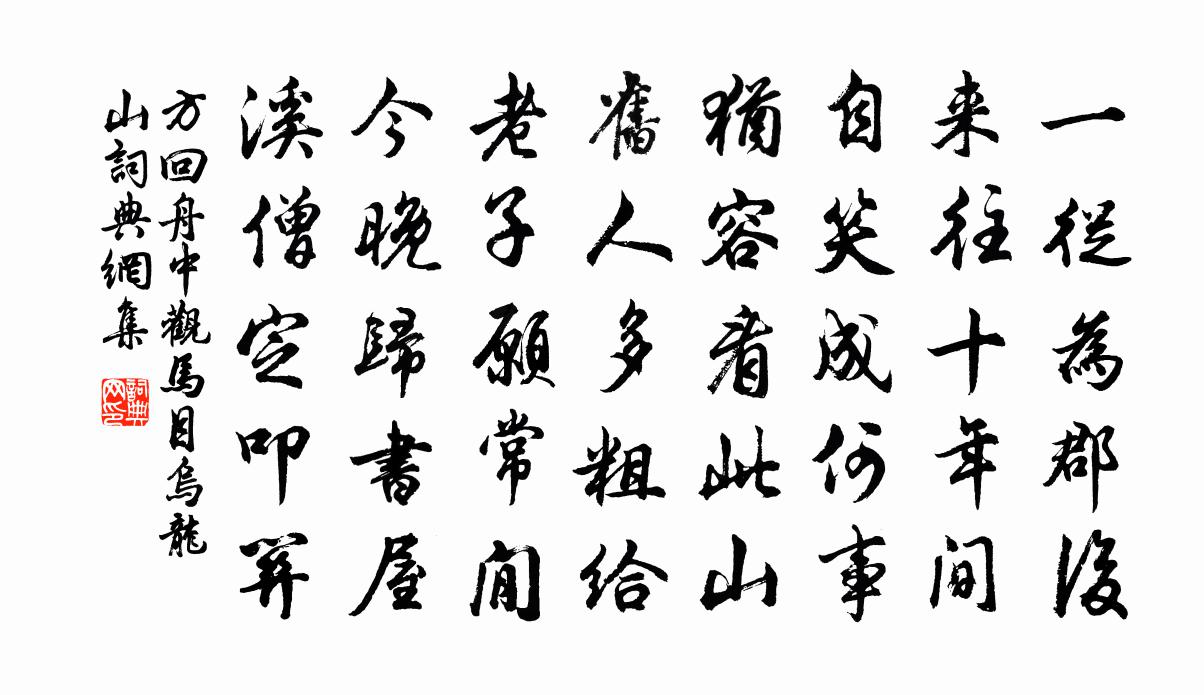 一從為郡後
来往十年间
自笑成何事
猶容看此山
舊人多粗给
老子願常閒
今晚歸書屋
溪僧定叩關
方回舟中觀馬目烏龍
山詞典網集
詞典網印